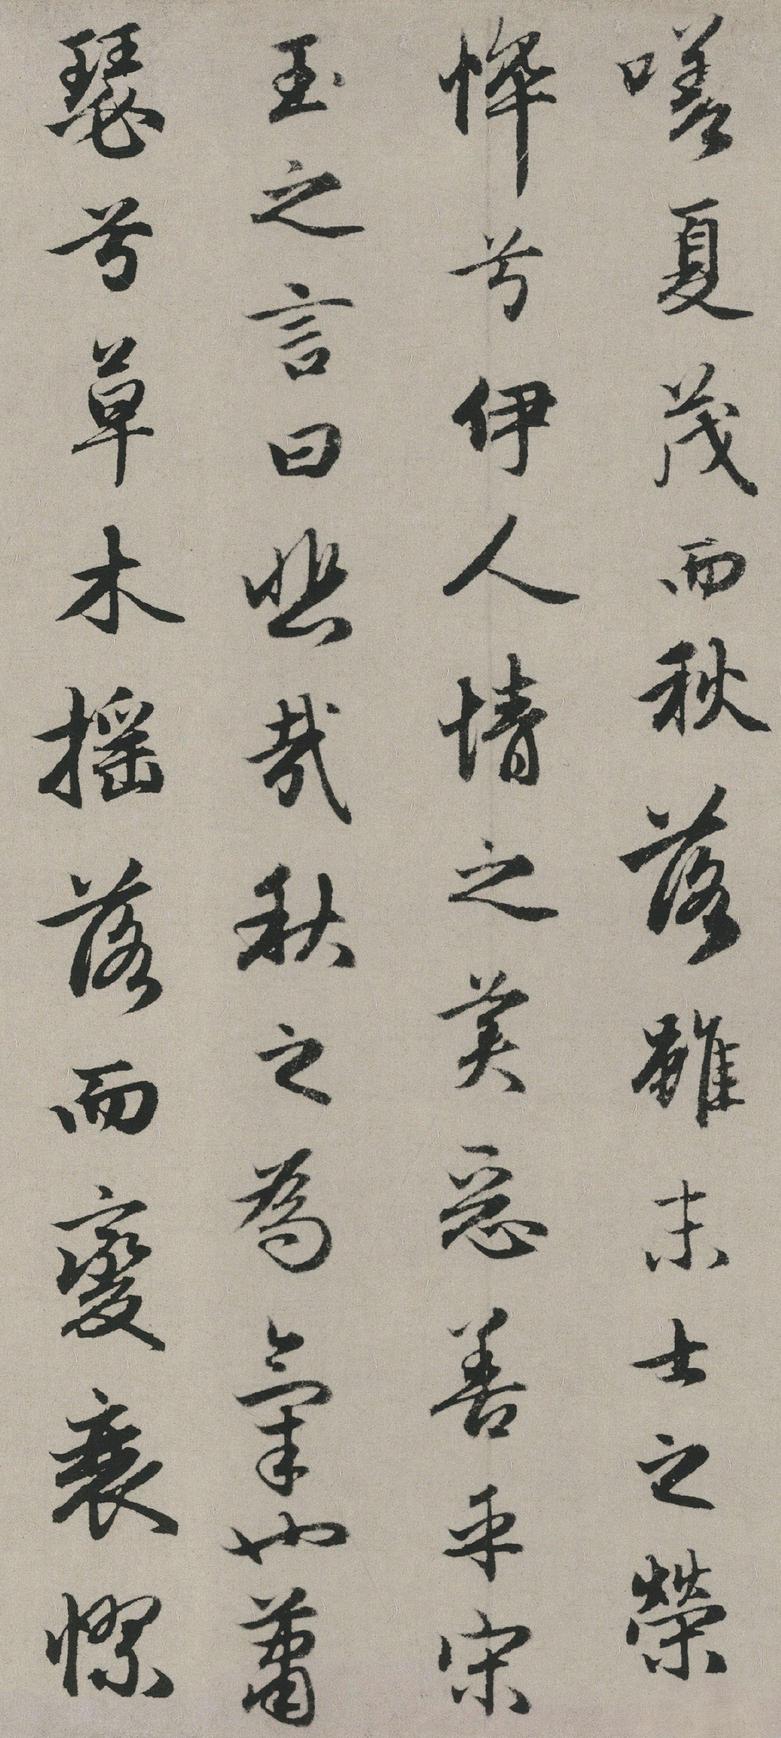 嗟夏茂而秋落雖末士之榮
悴兮伊人情之美惡善乎宋
玉之言曰悲哉秋之為氣也蕭
瑟兮草木搖落而變衰憀